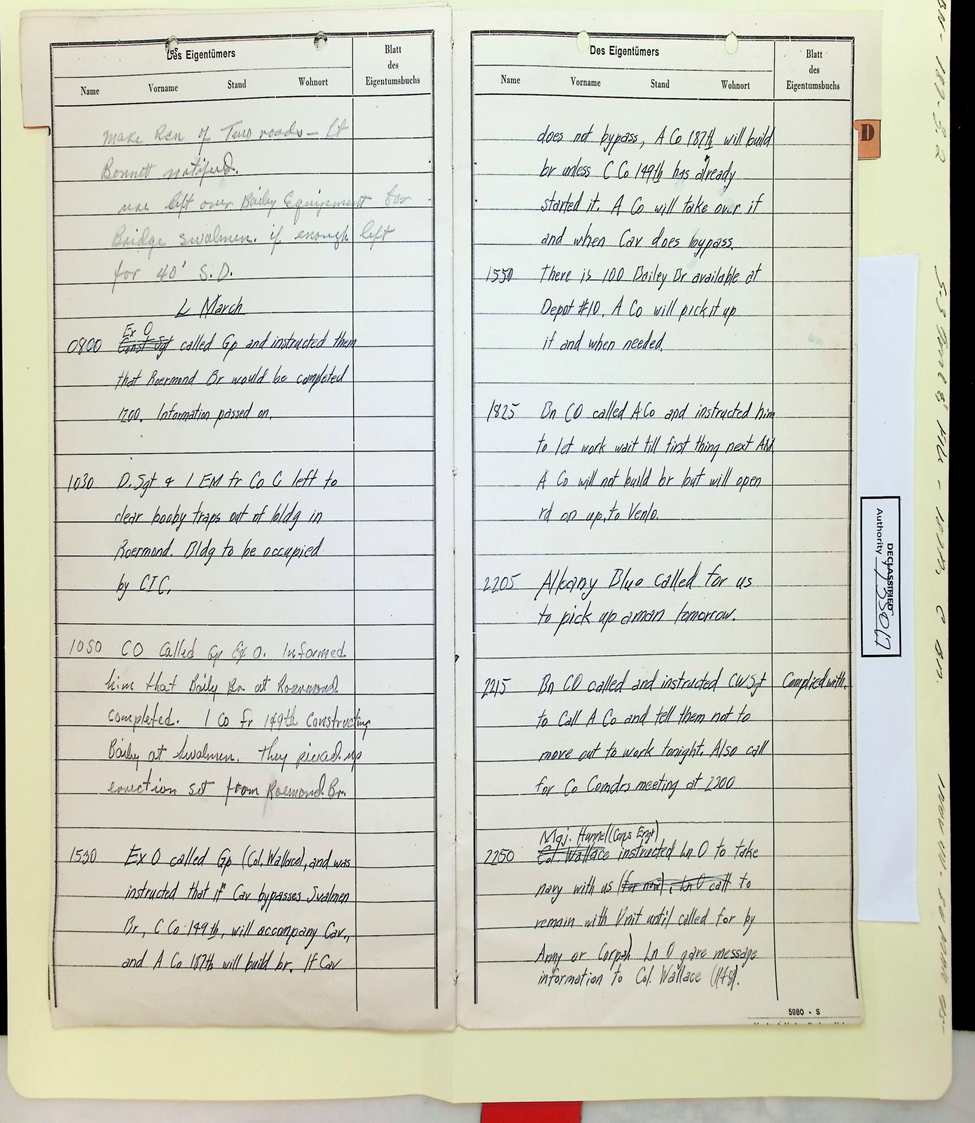 Des Eigentümers
Blatt
des
Eigentumsbuchs
Name Vorname Stand Wohnort
make Rcn of Two roads — Lt
Bonnett notified.
use left over Baily Equipment for
Bridge Swalmen. if enough left
for 40' S.D.
2 March
Ex O
0800 Const Sgt called Gp and instructed them
that Roermond Br would be completed
1200. Information passed on.
1030 D. Sgt & 1 EM fr Co C left to
clear booby traps out of bldg in
Roermond. Bldg to be occupied
by CIC.
1050 CO Called Gp Ex O. Informed
him that Baily Br at Roermond
completed. 1 Co fr 149th Constructing
Baily at Swalmen. They picked up
erection set from Roemond Br.
1530 Ex O called Gp (Col. Wallace), and was
instructed that if Cav bypasses Svalmen
Br, C Co 149th, will accompany Cav.,
and A Co 187th will build br. If Cav
Des Eigentümers
Blatt
des
Eigentumsbuchs
Name Vorname Stand Wohnort
does not bypass, A Co 187th will build
br unless C Co 149th has already
started it. A Co will take over if
and when Cav does bypass.
1550 There is 100 Bailey Br available at
Depot #10. A Co will pick it up
if and when needed.
1825 Bn CO called A Co and instructed him
to let work wait till first thing next AM
A Co will not build br but will open
rd on up, to Venlo.
2205 Albany Blue called for us
to pick up a man tomorrow.
2215 Bn CO called and instructed CWSgt Complied with.
to Call A Co and tell them not to
move out to work tonight. Also call
for Co Comdrs meeting at 2300
Maj. Hunnel (Corps Engr)
2250 Col. Wallace instructed Ln O to take
navy with us (for now), Ln O call to
remain with Unit until called for by
Army or Corps) Ln O gave message
information to Col. Wallace
5980 - S
D
DECLASSIFIED
Authority 735017